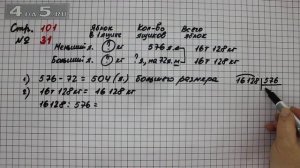 4а5.net
Стр. 101
№ 31
Яблок в 1 ящике
Кол-во ящиков
Всего яблок
Меньший я. ? кг 576 я. 16т 128 кг
Больший я. ? кг ?, на 72 я. м 16т 128 кг
1) 576 - 72 = 504 (я.) большего размера
2) 16т 128 кг = 16 128 кг
16128 : 576 =
16128 | 576